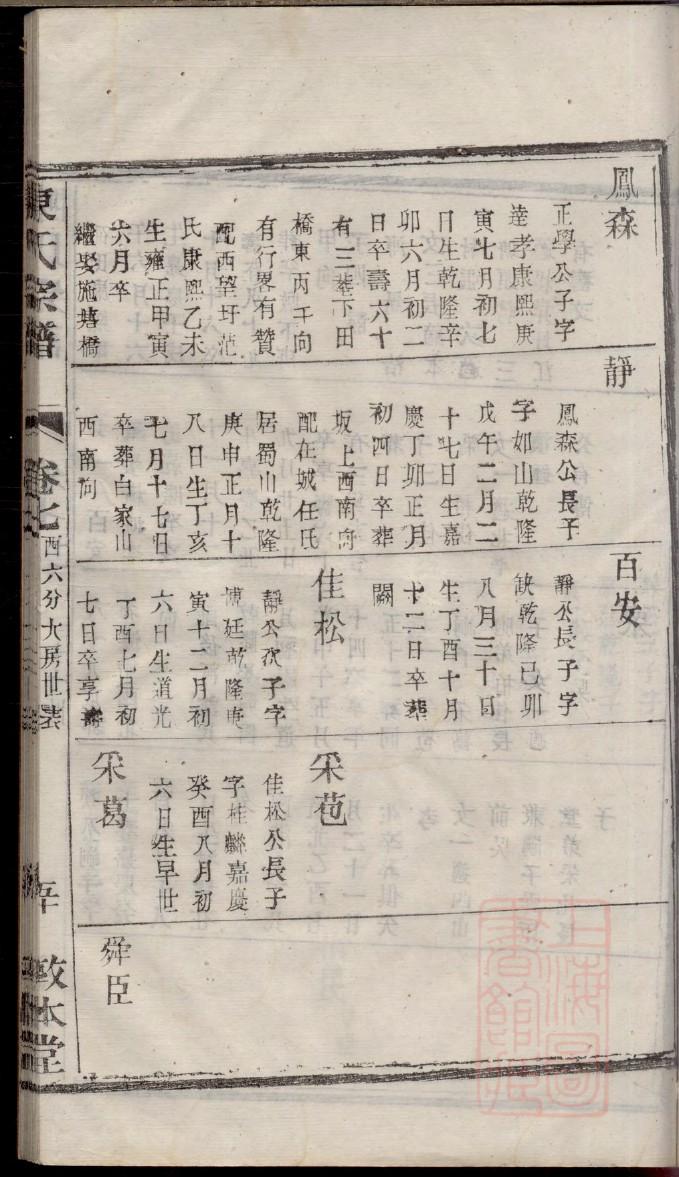 鳳森
正學公子字
逹孝康熙庚
寅七月初七
日生乾隆辛
卯六月初二
日卒壽六十
有二葬下田
橋東丙壬向
有行畧有贊
配西望圩范
氏康熙乙未
生雍正甲寅
六月卒
繼娶施塘橋
靜
鳳森公長子
字如山乾隆
戊午二月二
十七日生嘉
慶丁卯正月
初四日卒葬
坂上西南向
配在城任氏
居蜀山乾隆
庚申正月十
八日生丁亥
七月十七日
卒葬白家山
西南向
百安
靜公長子字
缺乾隆己卯
八月三十日
生丁酉十月
十二日卒葬
闕
佳松
靜公次子字
博廷乾隆庚
寅十二月初
六日生道光
丁酉七月初
七日卒享壽
采苞
佳松公長子
字桂麟嘉慶
癸酉八月初
六日生早世
采葛
舜臣
陳氏宗譜
卷七
西六分大房世表
五十
敦本堂
上海圖書館藏